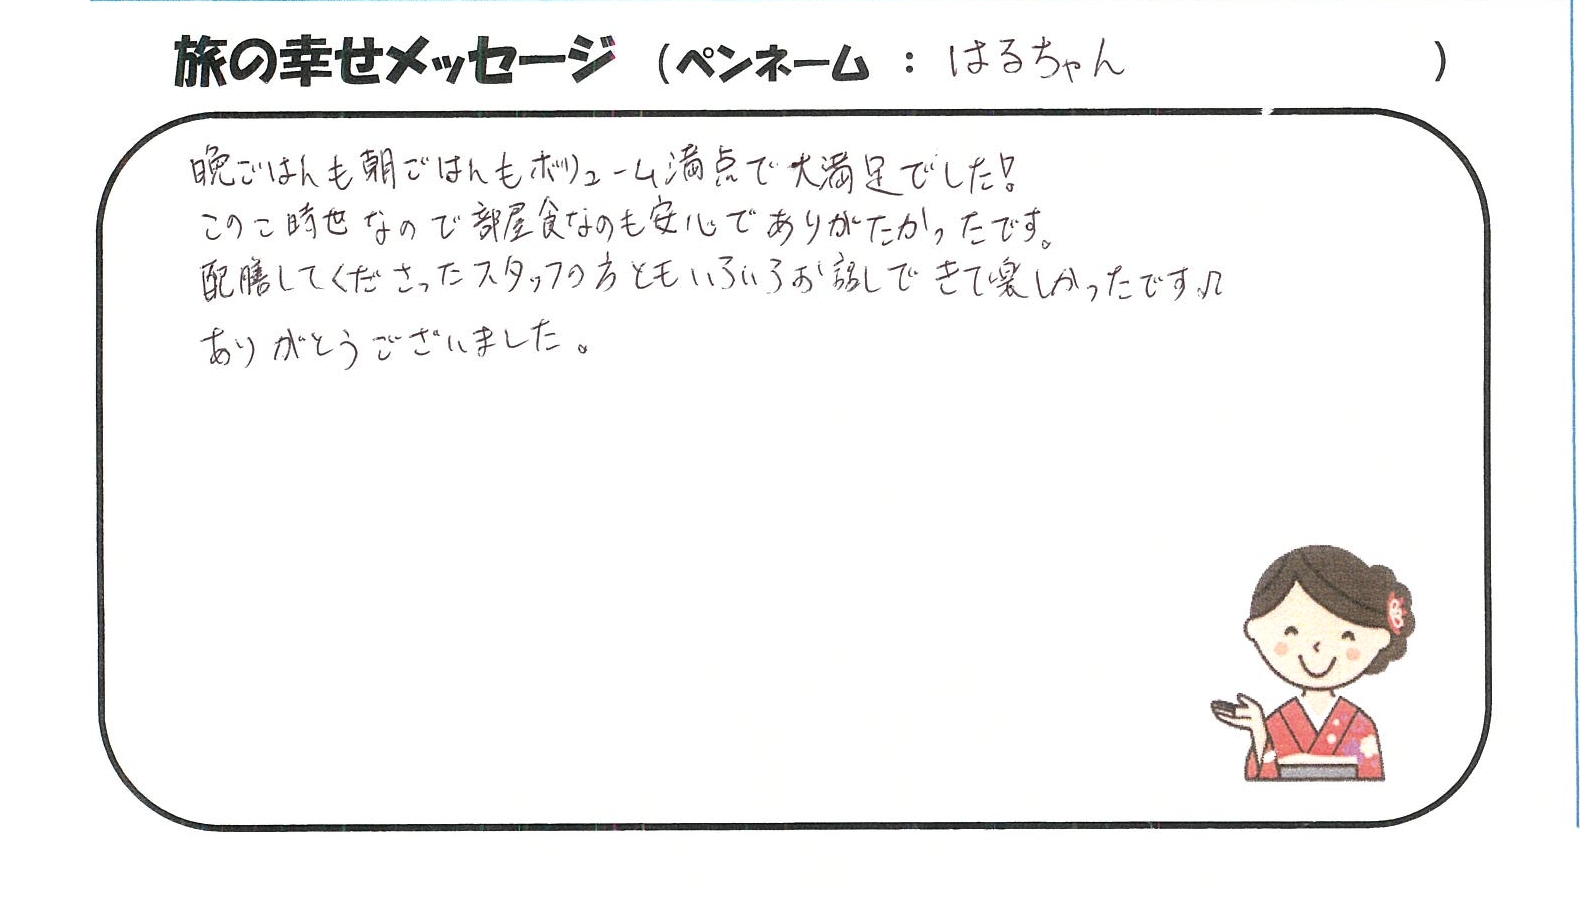 旅の幸せメッセージ (ペンネーム : はるちゃん )
晩ごはんも朝ごはんもボリューム満点で大満足でした!
このご時世なので部屋食なのも安心でありがたかったです。
配膳してくださったスタッフの方ともいろいろお話しできて楽しかったです♫
ありがとうございました。